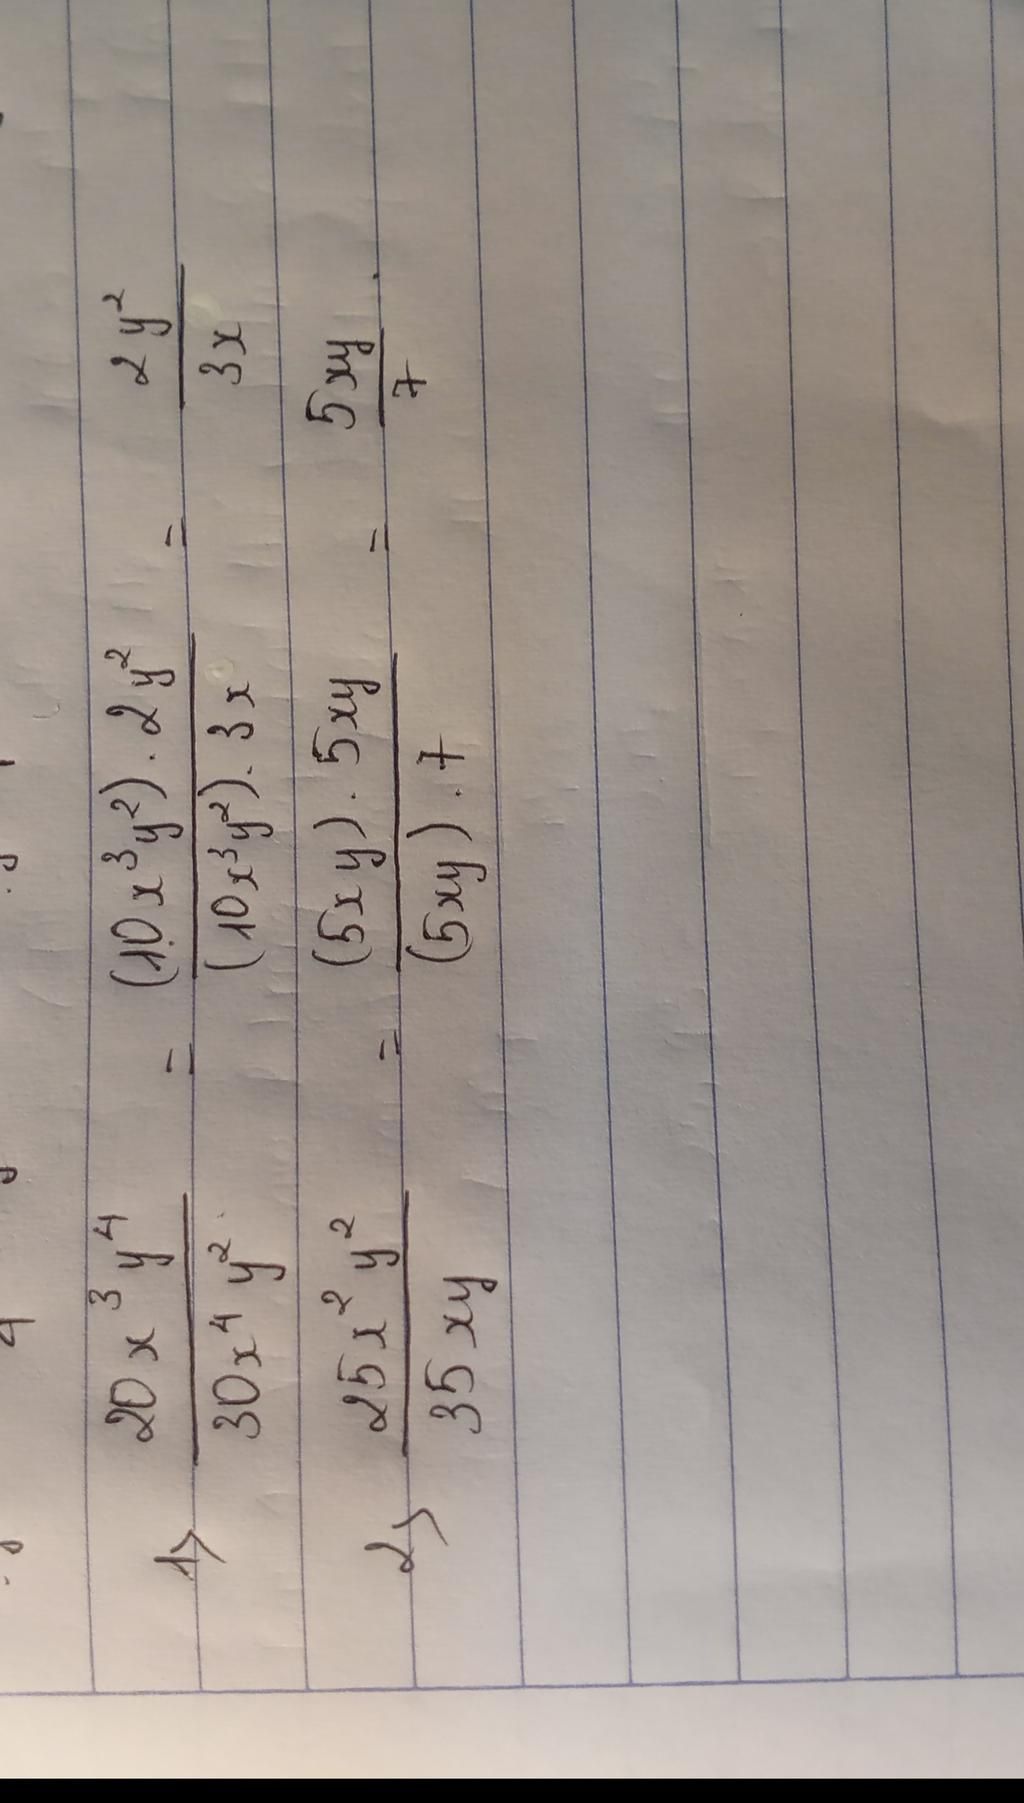 1> 20x³y⁴/30x⁴y² = (10x³y²).2y²/(10x³y²).3x = 2y²/3x
2> 25x²y²/35xy = (5xy).5xy/(5xy).7 = 5xy/7.